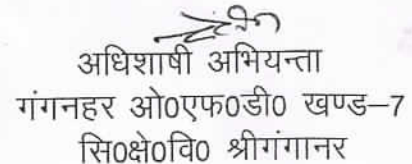 अधिशाषी अभियन्ता
गंगनहर ओ0एफ0डी0 खण्ड–7
सि0क्षे0वि0 श्रीगंगानर